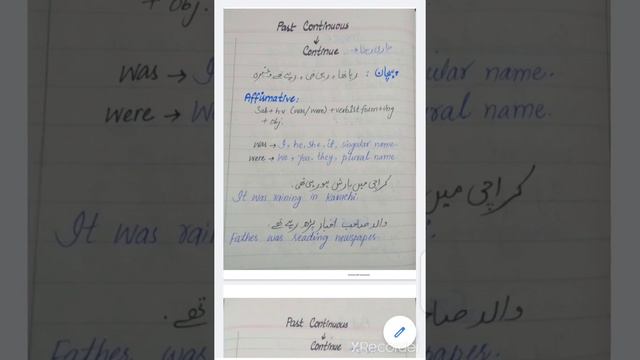 Past Continuous
↓
Continue → جاری رہنا
پہچان : رہا تھا ، رہی تھی ، رہے تھے وغیرہ
Affirmative:
Sub + hv (was/were) + verb 1st form + ing
+ obj.
was → I, he, she, it, singular name.
were → We, you, they, plural name
کراچی میں بارش ہو رہی تھی۔
It was raining in Karachi.
والد صاحب اخبار پڑھ رہے تھے۔
Father was reading newspaper.
Past Continuous
↓
Continue
XRecorder
+ obj.
was → I
were →
It was
تھے۔
Father was
name.
name.
کراچی میں
والد